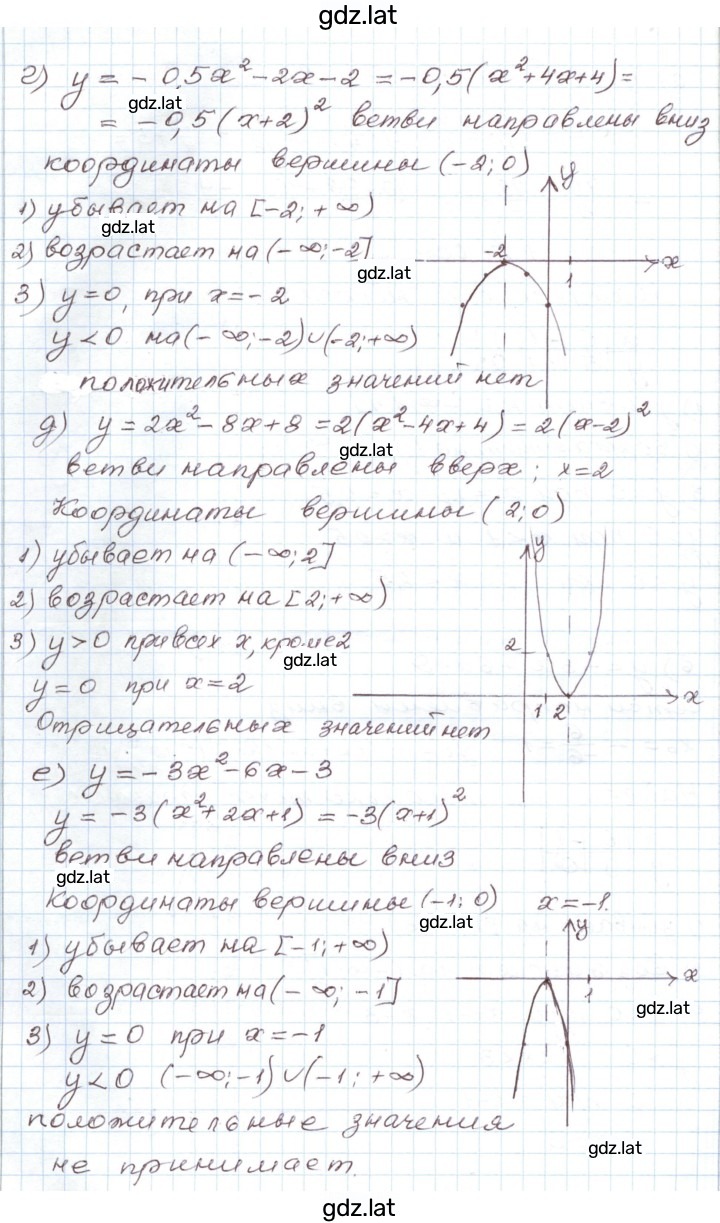 gdz.lat
г) y = -0,5x² - 2x - 2 = -0,5(x² + 4x + 4) =
gdz.lat
= -0,5(x+2)² ветви направлены вниз
координаты вершины (-2; 0)
y
1) убывает на [-2; +∞)
gdz.lat
2) возрастает на (-∞; -2]
-2
x
1
gdz.lat
3) y=0, при x=-2
y<0 на (-∞; -2)∪(-2; +∞)
положительных значений нет
д) y = 2x² - 8x + 8 = 2(x² - 4x + 4) = 2(x-2)²
gdz.lat
ветви направлены вверх; x=2
Координаты вершины (2; 0)
y
1) убывает на (-∞; 2]
2) возрастает на [2; +∞)
3) y>0 при всех x, кроме 2
2
gdz.lat
y=0 при x=2
x
1 2
Отрицательных значений нет
е) y = -3x² - 6x - 3
y = -3(x² + 2x + 1) = -3(x+1)²
ветви направлены вниз
gdz.lat
Координаты вершины (-1; 0) x=-1.
gdz.lat
y
1) убывает на [-1; +∞)
x
2) возрастает на (-∞; -1]
1
gdz.lat
3) y=0 при x=-1
y<0 (-∞; -1)∪(-1; +∞)
положительные значения
gdz.lat
не принимает.
gdz.lat